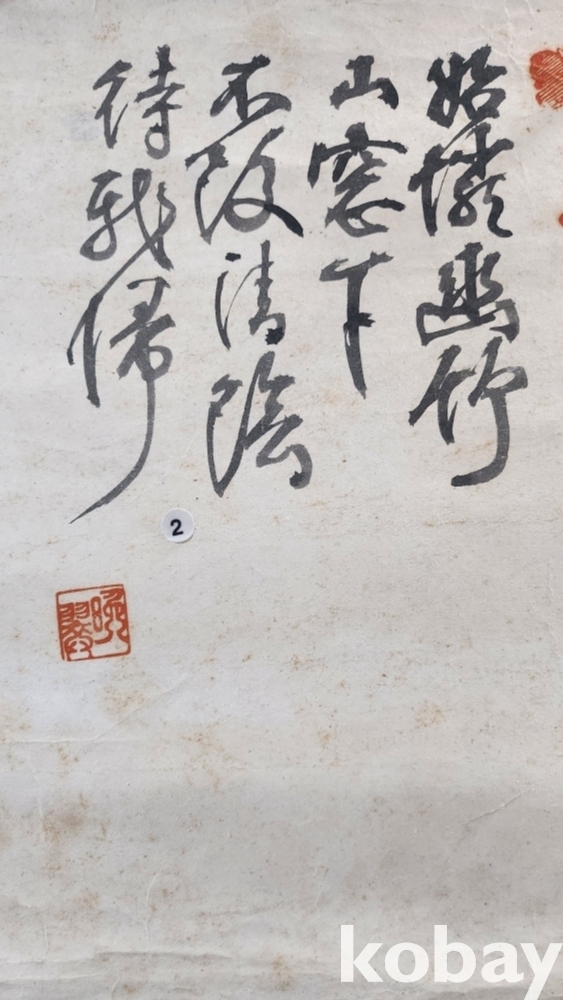 始憐幽竹
山窓下
不改清陰
待我帰
2
kobay